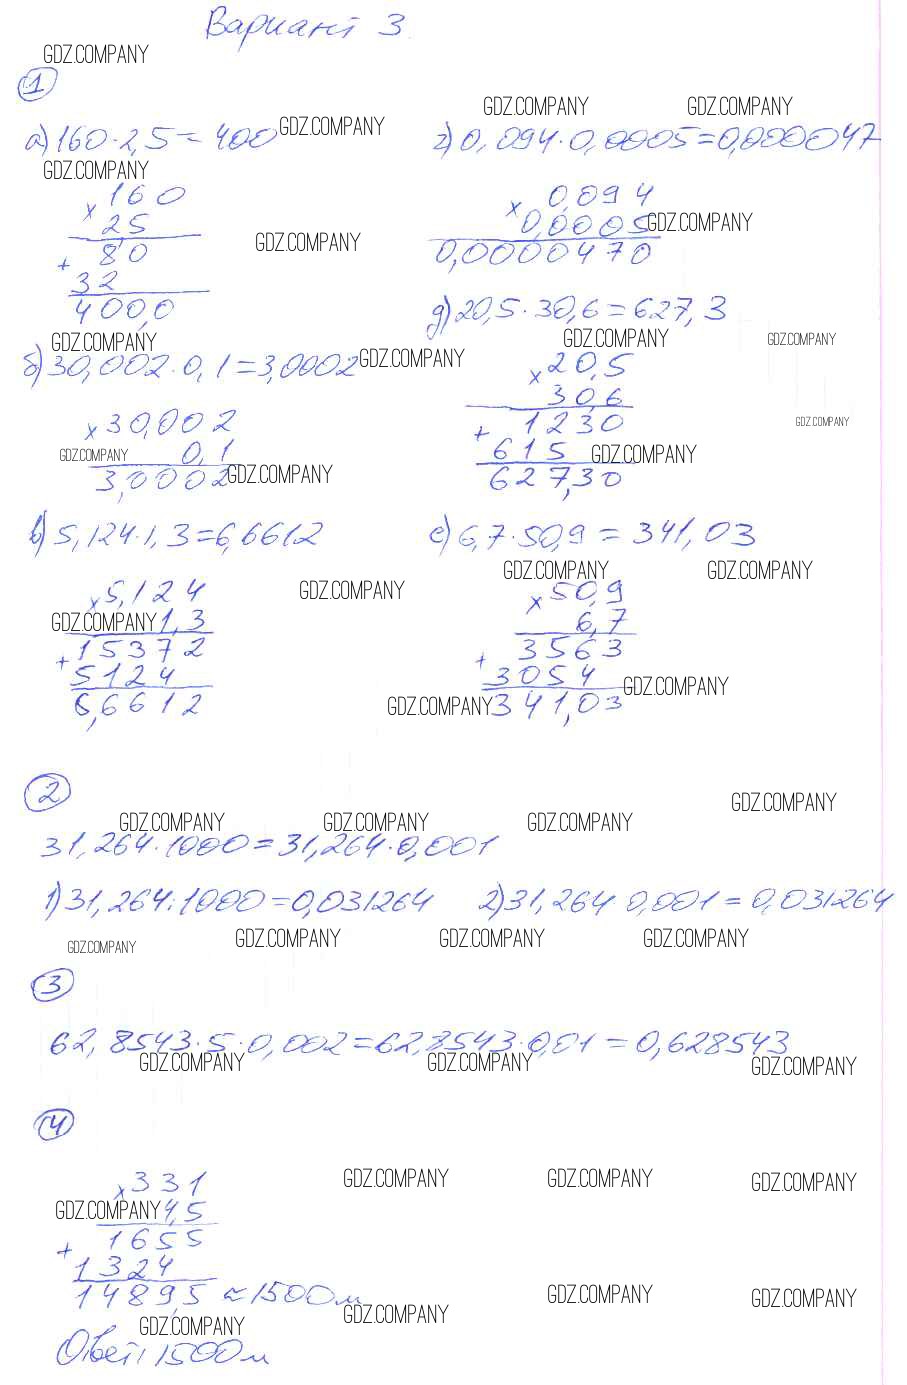 Вариант 3
GDZ.COMPANY
1
GDZ.COMPANY GDZ.COMPANY
а) 160 · 2,5 = 400 GDZ.COMPANY
г) 0,094 · 0,0005 = 0,000047
GDZ.COMPANY
× 160
25
80
+
32
400,0
GDZ.COMPANY
× 0,094
0,0005 GDZ.COMPANY
0,0000470
д) 20,5 · 30,6 = 627,3
GDZ.COMPANY GDZ.COMPANY GDZ.COMPANY
б) 30,002 · 0,1 = 3,0002 GDZ.COMPANY
× 30,002
GDZ.COMPANY 0,1
3,0002 GDZ.COMPANY
× 20,5
30,6
GDZ.COMPANY
+ 1230
615 GDZ.COMPANY
627,30
в) 5,124 · 1,3 = 6,6612
е) 6,7 · 50,9 = 341,03
GDZ.COMPANY GDZ.COMPANY
× 5,124 GDZ.COMPANY
GDZ.COMPANY 1,3
+ 15372
5124
6,6612
× 50,9
6,7
+ 3563
3054 GDZ.COMPANY
GDZ.COMPANY 341,03
2
GDZ.COMPANY
GDZ.COMPANY GDZ.COMPANY GDZ.COMPANY
31,264 · 1000 = 31,264 · 0,001
1) 31,264 : 1000 = 0,031264 2) 31,264 0,001 = 0,031264
GDZ.COMPANY GDZ.COMPANY GDZ.COMPANY GDZ.COMPANY
3
62,8543 · 5 · 0,002 = 62,8543 · 0,01 = 0,628543
GDZ.COMPANY GDZ.COMPANY GDZ.COMPANY
4
× 331 GDZ.COMPANY GDZ.COMPANY GDZ.COMPANY
GDZ.COMPANY 4,5
+ 1655
1324
1489,5 ≈ 1500 м GDZ.COMPANY GDZ.COMPANY
GDZ.COMPANY
GDZ.COMPANY
Ответ: 1500 м